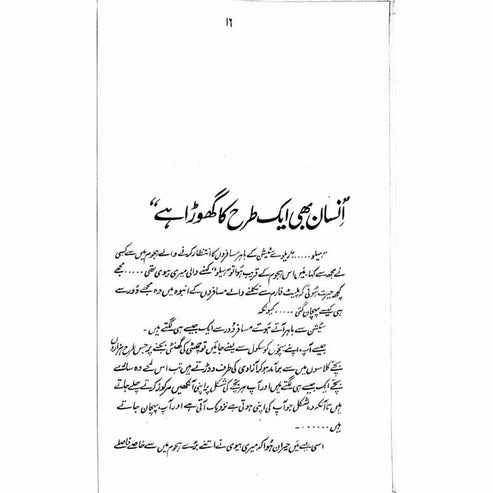 ۱۶
"اِنسان بھی ایک طرح کا گھوڑا ہے"
"ہیلو......" ریلوے سٹیشن کے باہر مسافروں کا انتظار کرنے والے ہجوم میں سے کسی
نے مجھ سے کہا، میں اس ہجوم کے قریب ہوا تو "ہیلو" کہنے والی میری بیوی تھی..... مجھے
کچھ حیرت ہوئی کہ پلیٹ فارم سے نکلنے والے مسافروں کے انبوہ میں وہ مجھے دُور سے
ہی کیسے پہچان گئی ..... کیونکہ
سٹیشن سے باہر آتے ہوئے مسافر دُور سے ایک جیسے ہی لگتے ہیں۔
جیسے آپ اپنے بچّوں کو سکول سے لینے جائیں تو چھٹی کی گھنٹی بجنے پر جس طرح ہزاروں
بچّے کلاسوں میں سے برآمد ہو کر آزادی کی طرف دوڑتے ہیں تب اس لمحے وہ سارے
بچّے ایک جیسے ہی لگتے ہیں اور آپ ہر بچّے کی شکل پر اپنی آنکھیں مرکوز کرتے چلے جاتے
ہیں تا آنکہ وہ شکل جو آپ کی اپنی ہوتی ہے نزدیک آتی ہے اور آپ پہچان جاتے
ہیں ......۔
اسی لیے میں حیران ہوا کہ میری بیوی نے اتنے بڑے ہجوم میں سے خاصے فاصلے